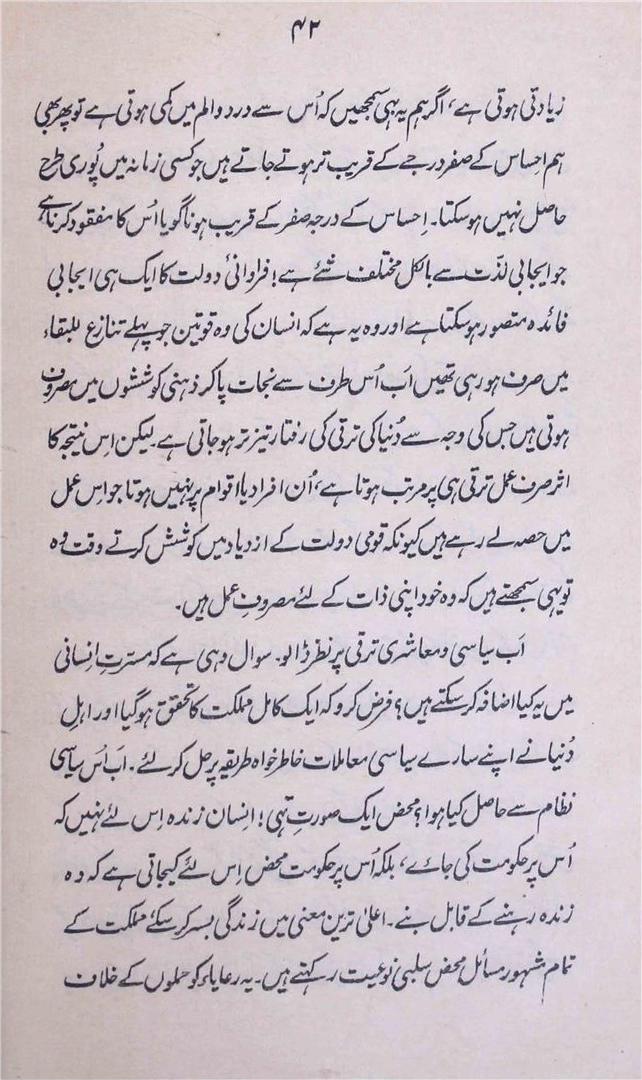 ۴۲
زیادتی ہوتی ہے، اگر ہم یہ بھی سمجھیں کہ اُس سے درد و الم میں کمی ہوتی ہے تو پھر بھی
ہم احساس کے صفر درجے کے قریب تر ہوتے جاتے ہیں جو کسی زمانہ میں پُوری طرح
حاصل نہیں ہو سکتا۔ اِحساس کے درجہ صفر کے قریب ہونا گویا اُس کا مفقود کرنا ہے
جو ایجابی لذّت سے بالکل مختلف شئے ہے! فراوانیٔ دولت کا ایک ہی ایجابی
فائدہ متصور ہو سکتا ہے اور وہ یہ ہے کہ انسان کی وہ قوتین جو پہلے تنازع للبقاء
میں صرف ہو رہی تھیں اَب اُس طرف سے نجات پاکر ذہنی کوششوں میں مصروف
ہوتی ہیں جس کی وجہ سے دُنیا کی ترقی کی رفتار تیز تر ہو جاتی ہے۔ لیکن اس نتیجہ کا
اثر صرف عمل ترقی ہی پر مرتب ہوتا ہے، اُن افراد یا اقوام پر نہیں ہوتا جو اس عمل
میں حصہ لے رہے ہیں کیونکہ قومی دولت کے ازدیاد میں کوشش کرتے وقت وہ
تو یہی سمجھتے ہیں کہ وہ خود اپنی ذات کے لئے مصروفِ عمل ہیں۔
اَب سیاسی و معاشری ترقی پر نظر ڈالو۔ سوال وہی ہے کہ مسرّتِ اِنسانی
میں یہ کیا اضافہ کر سکتے ہیں؟ فرض کرو کہ ایک کامل مملکت کا تحقق ہو گیا اور اہلِ
دُنیا نے اپنے سارے سیاسی معاملات خاطر خواہ طریقہ پر حل کر لئے۔ اب اُس سیاسی
نظام سے حاصل کیا ہوا؟ محض ایک صورتِ تہی! اِنسان زندہ اِس لئے نہیں کہ
اُس پر حکومت کی جائے، بلکہ اُس پر حکومت محض اِس لئے کیجاتی ہے کہ وہ
زندہ رہنے کے قابل بنے۔ اعلیٰ ترین معنی میں زندگی بسر کر سکے مملکت کے
تمام مشہور مسائل محض سلبی نوعیت رکہتے ہیں۔ یہ رعایاء کو حملوں کے خلاف